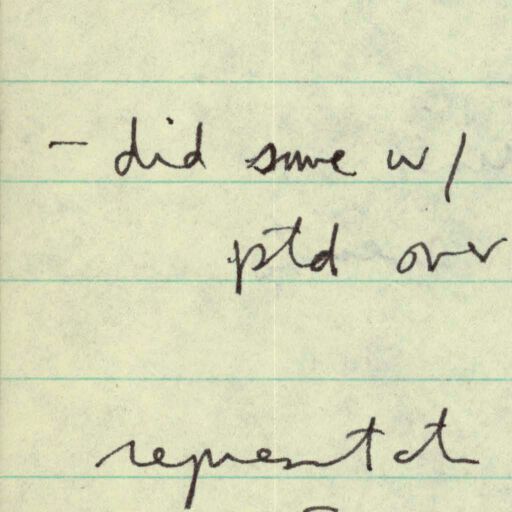 - did same w/
ptd over
representatn